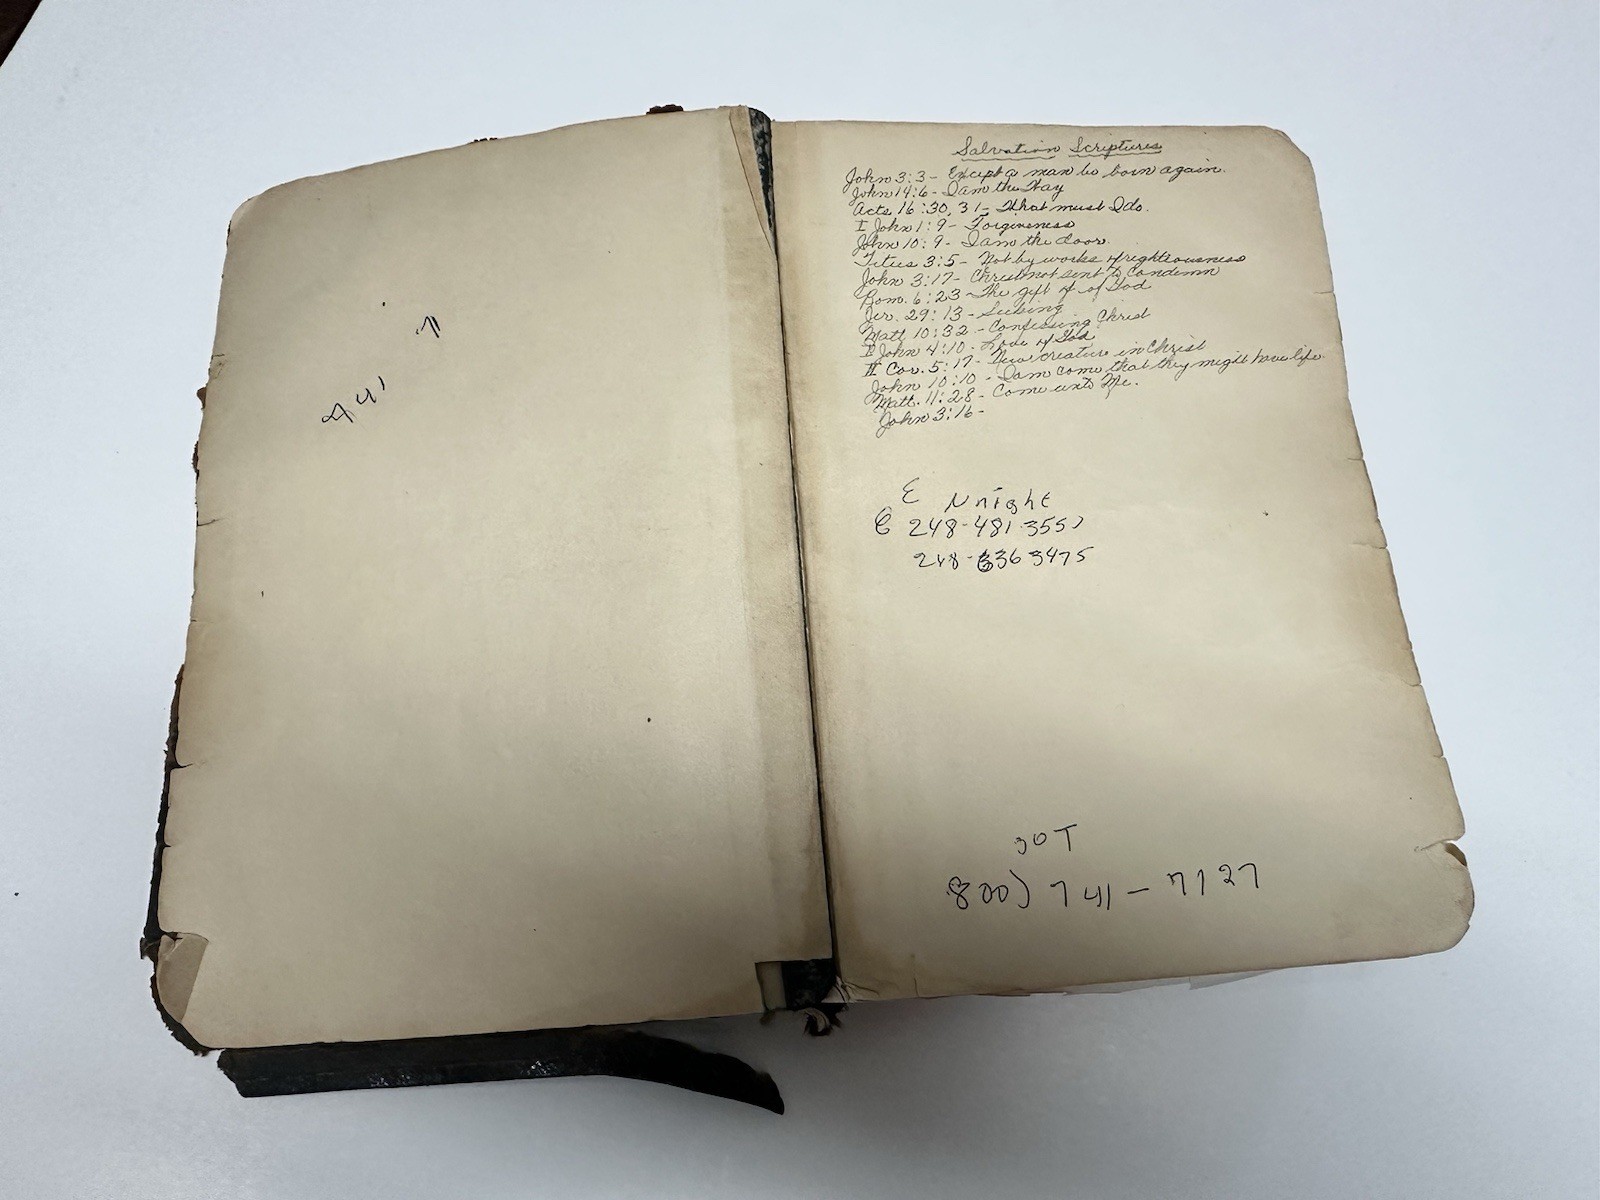 7
741
Salvation Scriptures
John 3:3 - Except a man be born again.
John 14:6 - I am the Way
Acts 16:30, 31 - What must I do.
I John 1:9 - Forgiveness
John 10:9 - I am the door.
Titus 3:5 - Not by works of righteousness
John 3:17 - Christ not sent to condemn
Rom. 6:23 - The gift of of God
Jer. 29:13 - Seeking
Matt 10:32 - Confessing Christ
I John 4:10 - Love of God
II Cor. 5:17 - New creature in Christ
John 10:10 - I am come that they might have life.
Matt. 11:28 - Come unto Me.
John 3:16 -
E Nnight
C 248-481-3557
248-636 3475
JOT
800) 741-7127